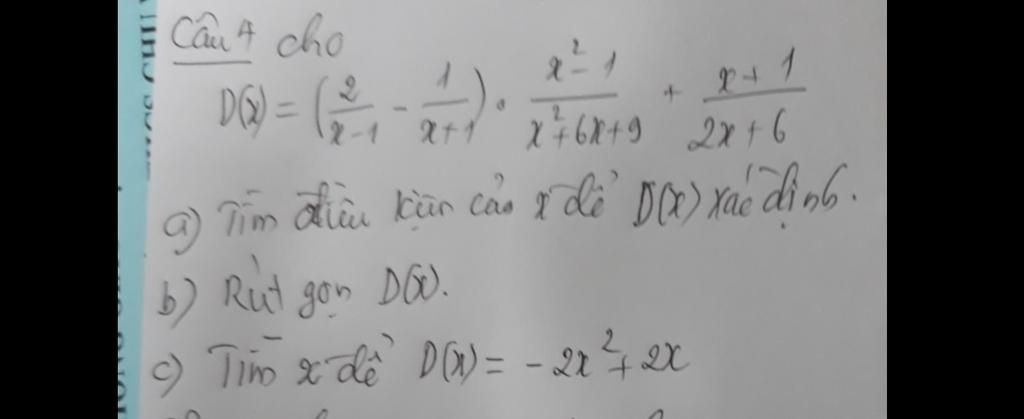 Câu 4 cho
D(x) = (2/(x-1) - 1/(x+1)) . (x²-1)/(x²+6x+9) + (x+1)/(2x+6)
a) Tìm điều kiện của x để D(x) xác định.
b) Rút gọn D(x).
c) Tìm x để D(x) = -2x²+2x